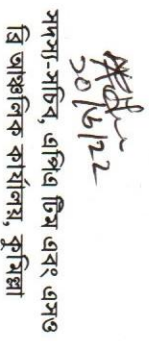 ২০/৬/২২
সদস্য-সচিব, এপিএ টিম এবং এসও
বি আঞ্চলিক কার্যালয়, কুমিল্লা